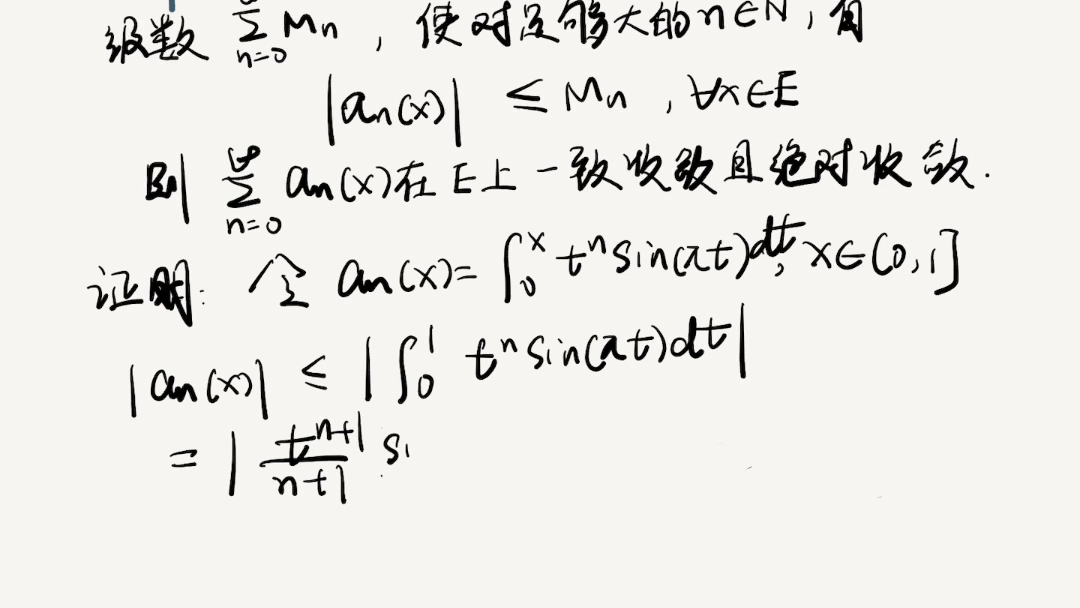 级数 ∑_{n=0}^{∞} Mn , 使对足够大的 n∈N, 有
|an(x)| ≤ Mn , ∀x∈E
则 ∑_{n=0}^{∞} an(x) 在 E 上一致收敛且绝对收敛.
证明: 令 an(x) = ∫_0^x t^n sin(πt)dt, x∈(0,1]
|an(x)| ≤ |∫_0^1 t^n sin(πt)dt|
= | t^{n+1}/n+1 si